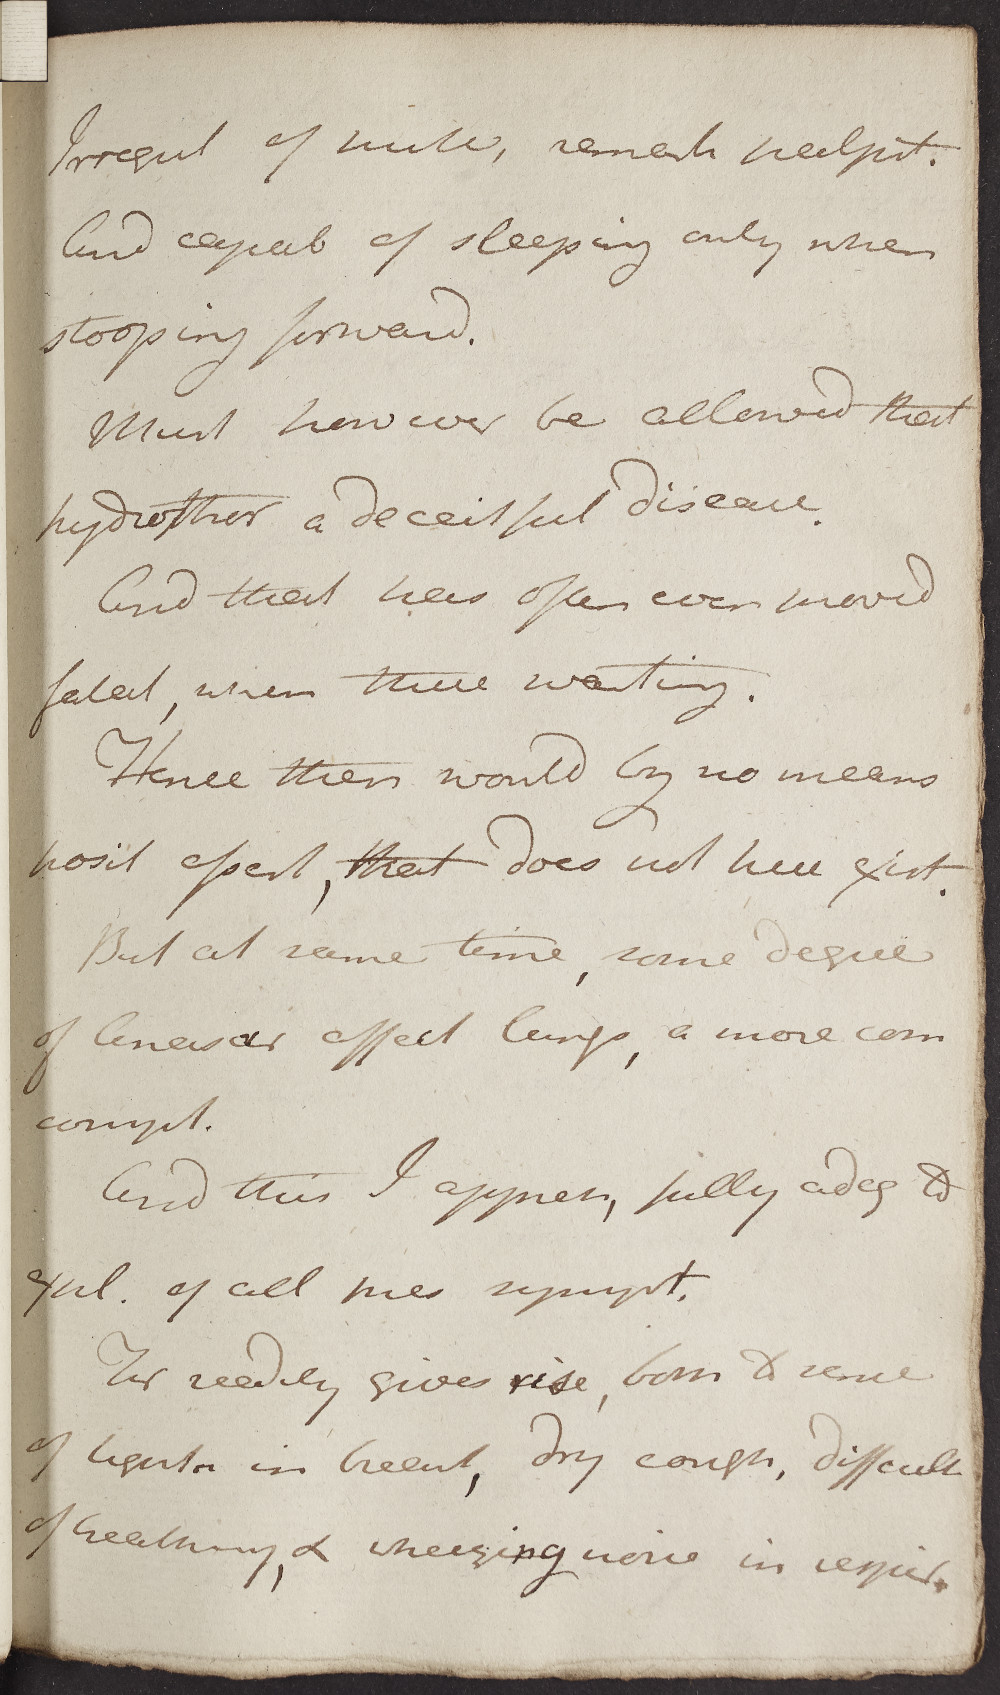 Irregul of pulse, remark palpit.
And capab of sleeping only when
stooping forward.
Must however be allowed that
hydrothor a deceitful disease.
And that has often even proved
fatal, when these wanting.
Hence then would by no means
posit assert, that does not here exist.
But at same time, some degree
of Anasar affect lungs, a more com
compt.
And this I appreh, fully adeq to
expl. of all pres sympt.
For readily gives rise, both to sense
of tightn in breast, dry cough, difficult
of breathing, & wheezing noise in respir.